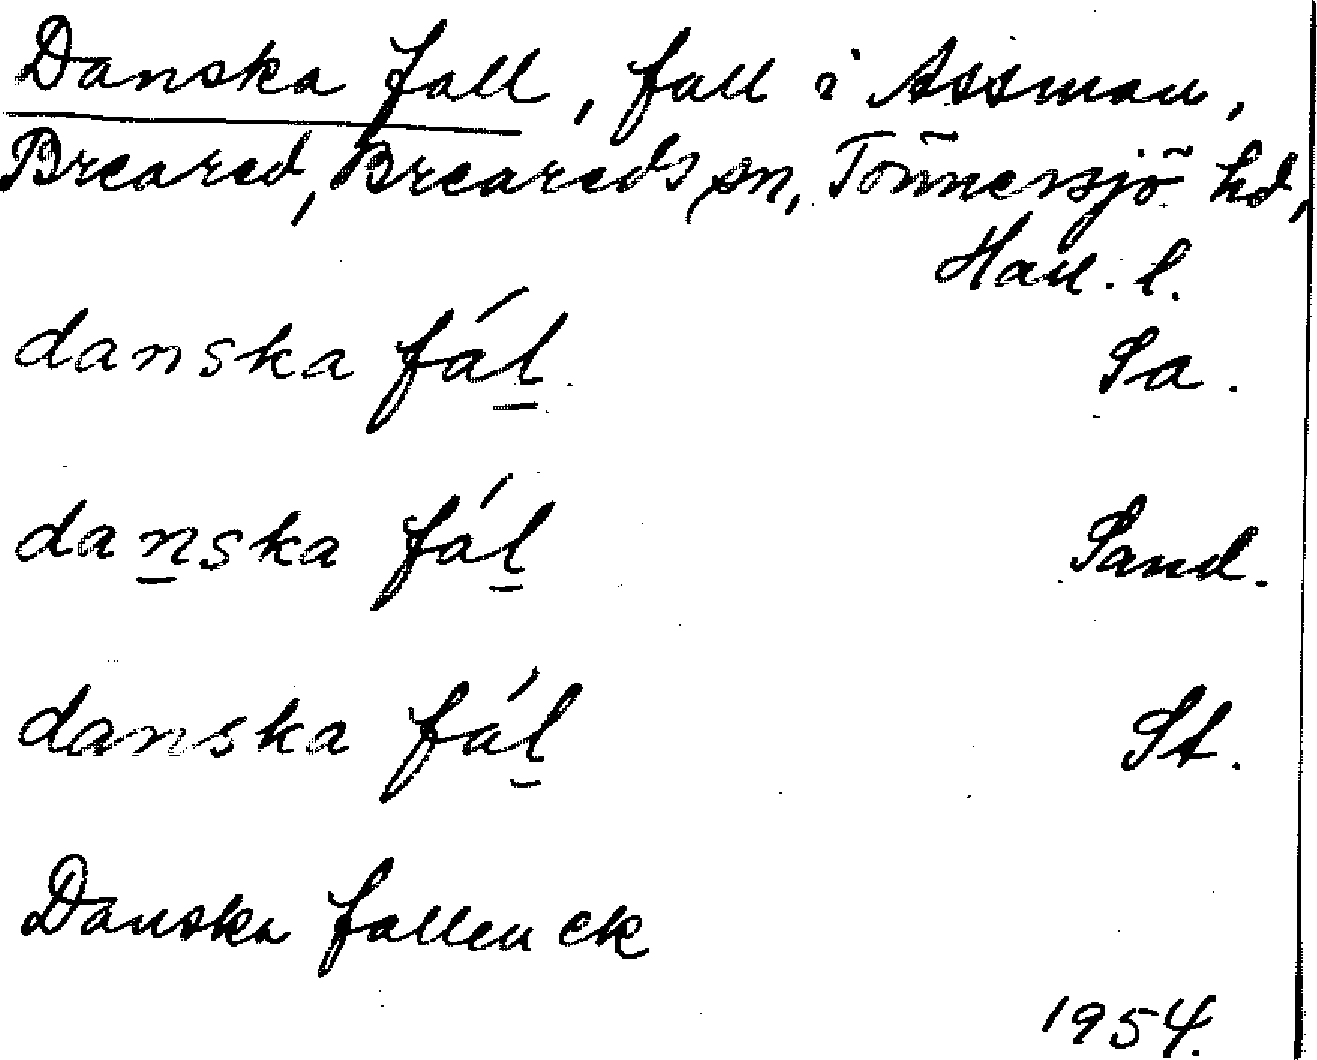 Danska fall, fall i Assman,
Breared, Breareds sn, Tönnersjö hd,
Hall. l.
danska fál̲ Sa.
dan̲ska fál̲ Sand.
danska fál̲ St.
Danska fallen ek
1954.